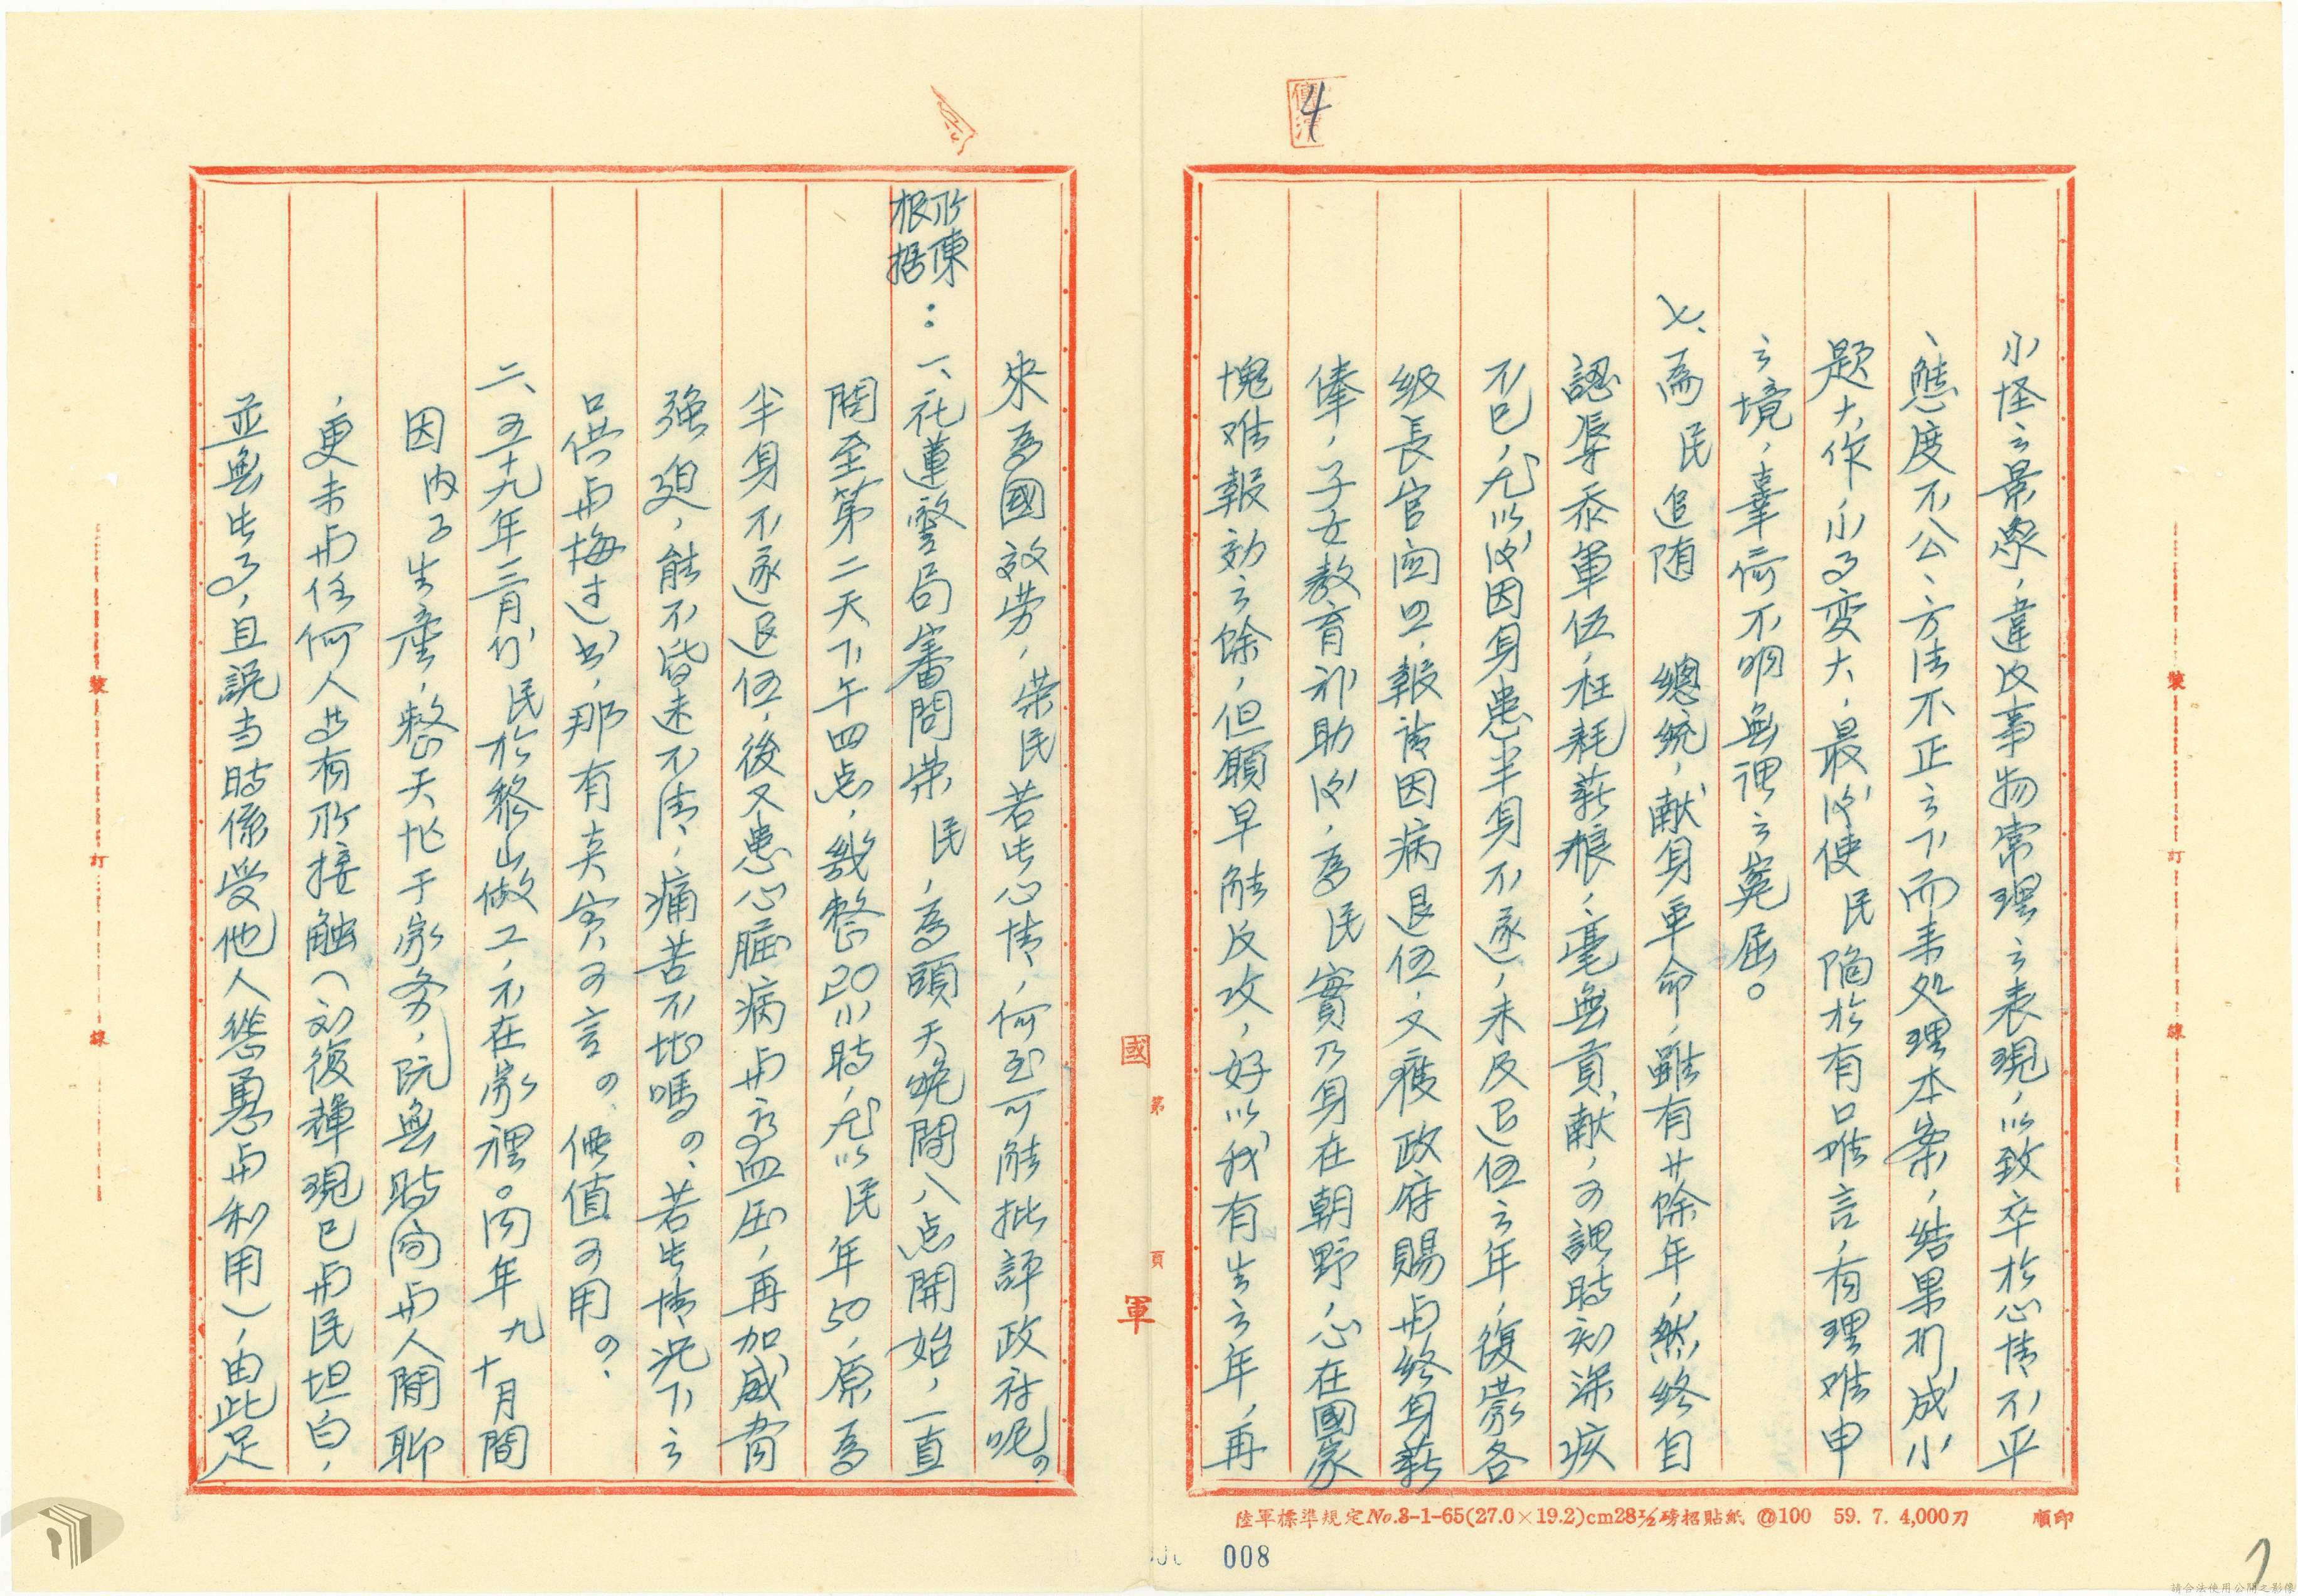 4
小怪之景象，違反事物常理之表現，以致卒於心情不平
、態度不公、方法不正之下而来处理本案，结果形成小
题大作，小事变大，最後使　民陷於有口难言，有理难申
之境，辜荷不明無理之冤屈。
七、为　民追随　　總統，献身革命，雖有廿馀年，然终自
認辱忝軍伍，枉耗薪粮，毫無貢献，可謂時刻深疚
不已，尤以後因身患半身不遂，未及退伍之年，復蒙各
级長官関照，報请因病退伍，又獲政府賜与终身薪
俸，子女教育補助後，為　民實乃身在朝野，心在國家
愧难報効之馀，但願早能反攻，好以我有生之年，再
來為國效劳，荣民若此心情，何至可能批評政府呢？
所陳
根据：一、花蓮警局審問荣　民，為頭天晚間八点開始，一直
間至第二天下午四点，幾整20小時，尤以民年50，原為
半身不遂退伍，後又患心臟病与高血压，再加威脅
强迫，能不昏迷不清，痛苦不堪嗎？若此情况下之
口供与悔过书，那有真实可言？価值可用？
二、五十九年三月份　民於黎山做工，不在家裡。同年九十月間
因内子生產，整天忙于家务，既無時间与人閒聊
，更未与任何人等有所接触（刘復輝現已与民坦白，
並無此事，且説当時係受他人慫恿与利用），由此足
國
軍
第
頁
裝
訂
線
裝
訂
線
陸軍標準規定No.3-1-65(27.0×19.2)cm28½磅招貼紙 @100　59. 7. 4,000刀　順印
008
7
請合法使用公開之影像